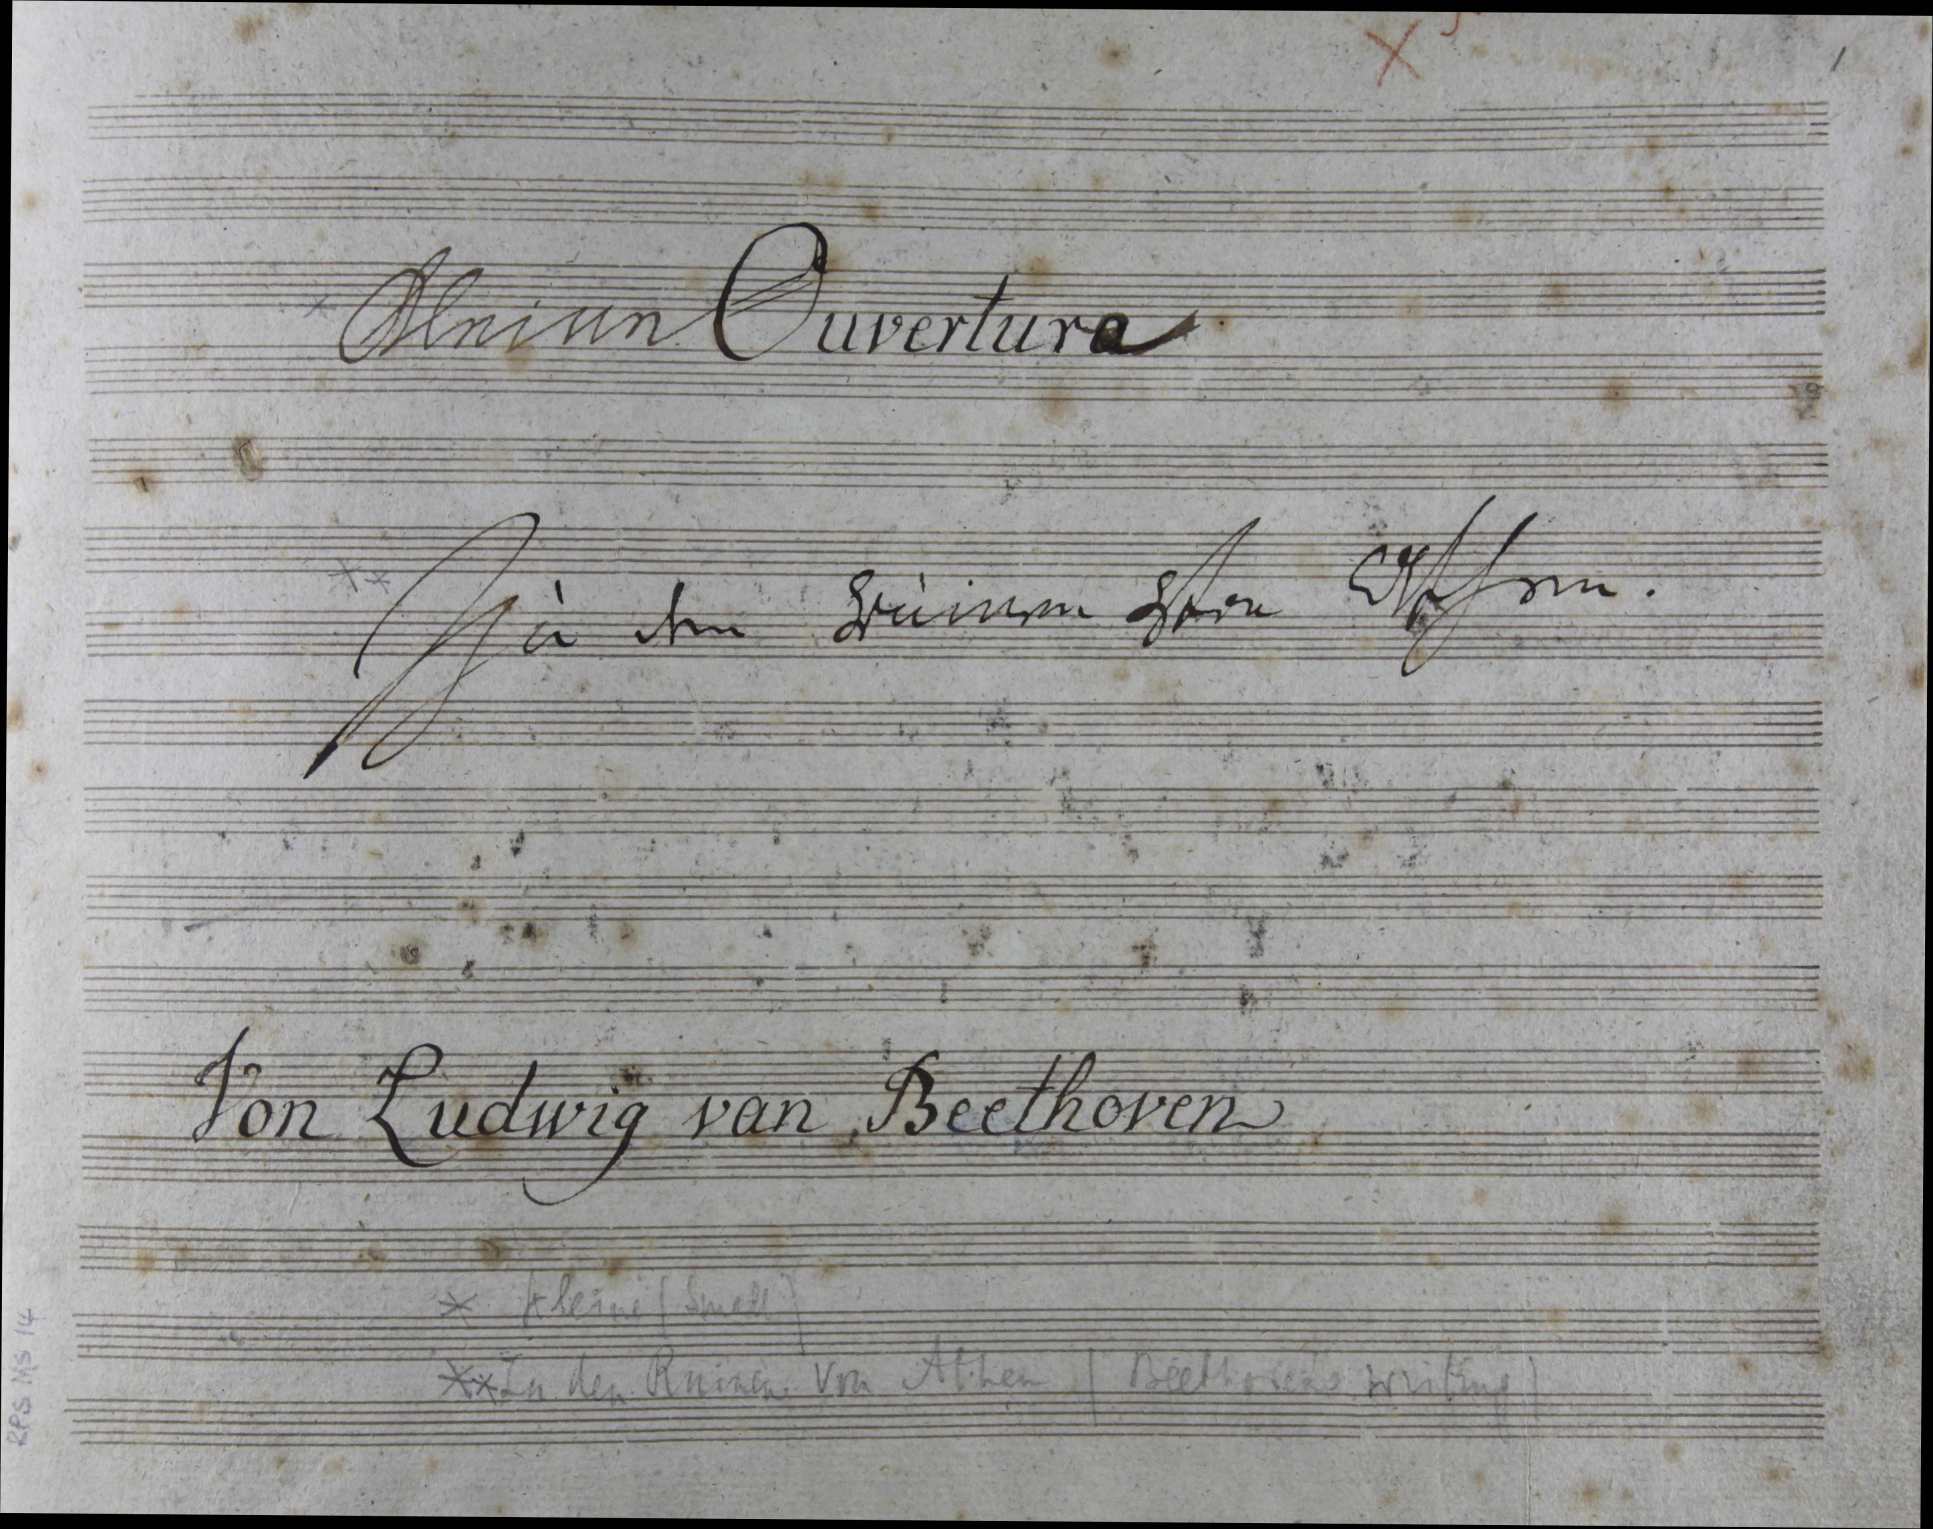 1
Kleine Ouvertura
Zu den Ruinen von Athen.
Von Ludwig van Beethoven
* Kleine (Small)
** Zu den Ruinen von Athen (Beethoven's writing)
RPS MS 14